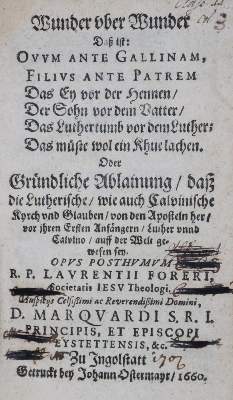 Wunder vber Wunder
Daß ist:
OVVM ANTE GALLINAM,
FILIVS ANTE PATREM
Das Ey vor der Hennen/
Der Sohn vor dem Vatter/
Das Lutherthumb vor dem Luther:
Das müste wol ein Khue lachen.
Oder
Gründliche Ablainung / daß
die Lutherische / wie auch Calvinische
Kyrch vnd Glauben / von den Aposteln her/
vor jhren Ersten Anfängern / Luther vnnd
Calvino / auff der Welt ge-
wesen sey.
OPVS POSTHVMVM
R. P. LAVRENTII FORERI,
Societatis IESV Theologi.
Auspicijs Celsissimi ac Reverendissimi Domini,
D. MARQVARDI S. R. I.
PRINCIPIS, ET EPISCOPI
EYSTETTENSIS, &c.
Zu Ingolstatt
Getruckt bey Johann Ostermayr / 1660.